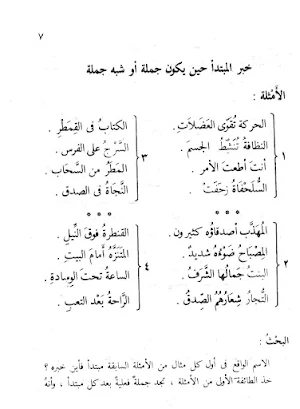 ٧
خبر المبتدأ حين يكون جملة أو شبه جملة
الأَمثلة :
الحركة تُقَوِّى العَضَلاتِ .
النظافة تُنَشِّطُ الجسمَ .
أنتَ أطعتَ الأمر .
السُّلَحْفَاةُ زحَفَتْ .
١
الكتابُ فى القِمَطْرِ .
السَّرْجُ على الفرس .
المَطَرُ من السَّحَاب .
النَّجَاةُ فى الصدق .
٣
* * *
* * *
المُهَذَّب أصدقاؤُه كثيرون .
المِصْبَاحُ ضَوْءُهُ شديدٌ .
البنتُ جَمالُها الشَّرَفُ .
التُّجارُ شِعَارُهُمُ الصِّدقُ .
٢
القنطرةُ فوقَ النِّيل .
المُتَنَزَّهُ أمامَ البيتِ .
الساعةُ تحتَ الوسادةِ .
الرَّاحةُ بَعْد التعب .
٤
البحْثُ :
الاسم الواقع فى أول كل مثال من الأمثلة السابقة مبتدأ فأين خبره ؟
خذ الطائفة الأولى من الأمثلة ، تجد جملةً فعليةً بعد كل مبتدأ ، وأنهُ